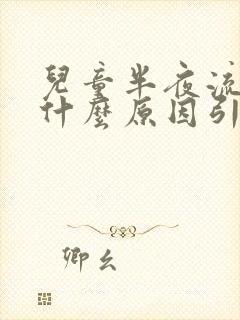 兒童半夜流
什麼原因引
卿幺